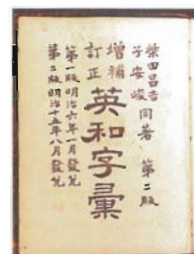 柴田昌吉
子安峻 同著 第二版
増補
訂正 英和字彙
第一版明治六年一月發兌
第二版明治十五年八月發兌